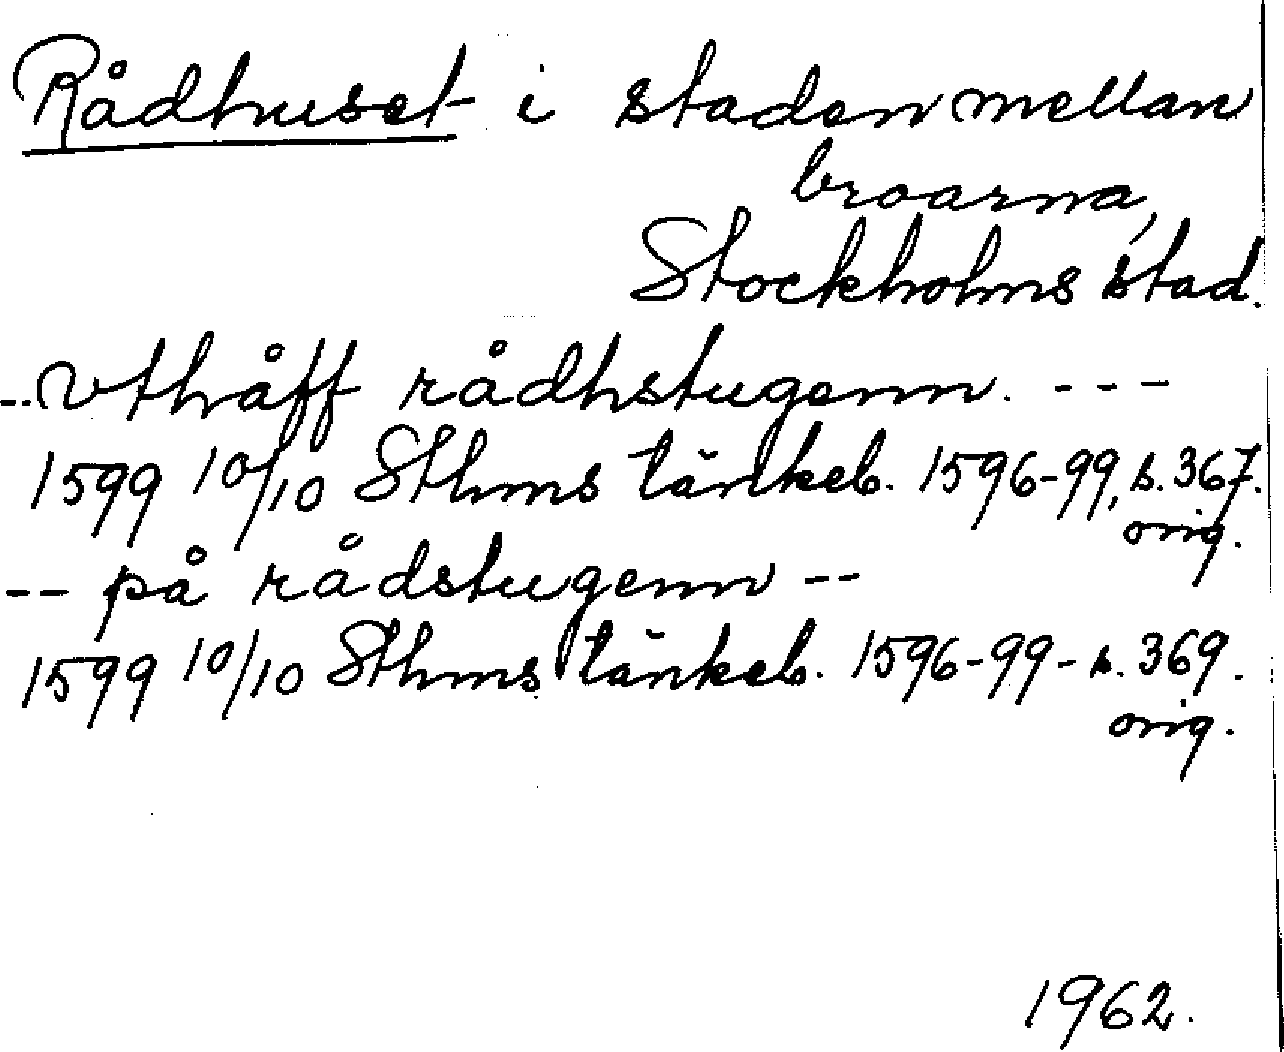 Rådhuset i staden mellan
broarna,
Stockholms stad.
-- Vthåff rådhstugenn. ---
1599 10/10 Sthms tänkeb. 1596-99, s. 367.
orig.
-- på rådstugenn --
1599 10/10 Sthms tänkeb. 1596-99- s. 369.
orig.
1962.